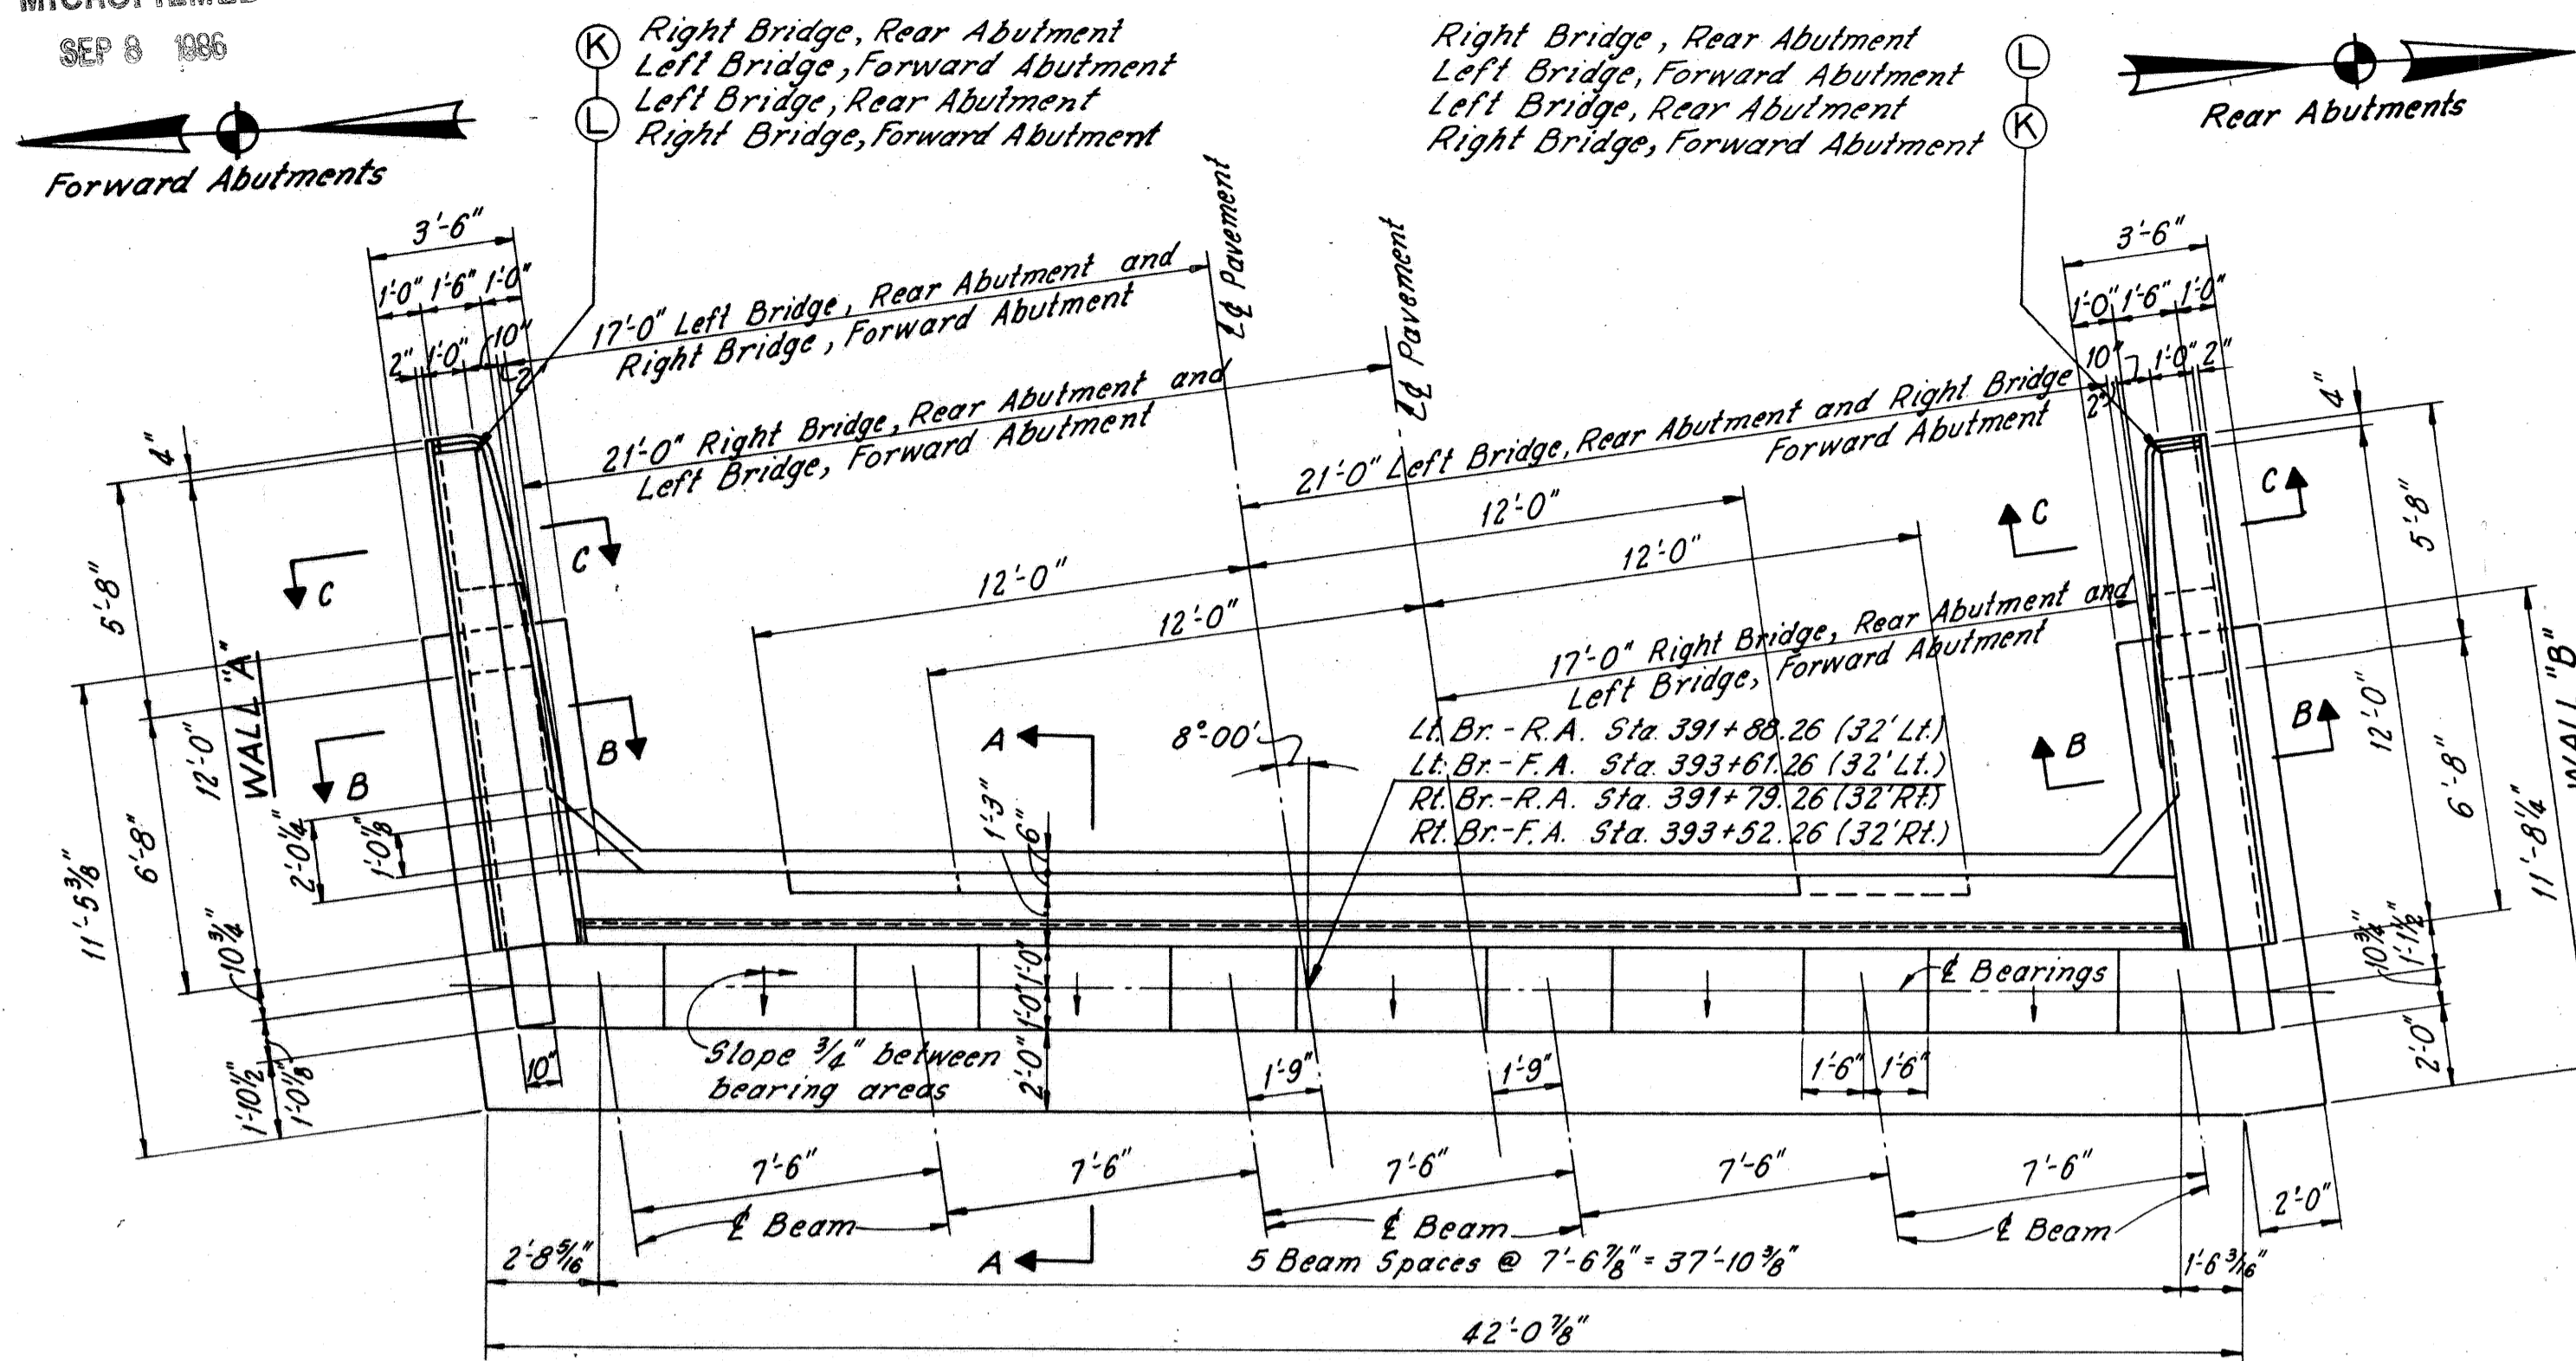 MICROFILMED
SEP 8 1986
Forward Abutments
K
L
Right Bridge, Rear Abutment
Left Bridge, Forward Abutment
Left Bridge, Rear Abutment
Right Bridge, Forward Abutment
Right Bridge, Rear Abutment
Left Bridge, Forward Abutment
Left Bridge, Rear Abutment
Right Bridge, Forward Abutment
L
K
Rear Abutments
3'-6"
1'-0" 1'-6" 1'-0"
2" 1'-0" 10"
2"
17'-0" Left Bridge, Rear Abutment and
Right Bridge, Forward Abutment
21'-0" Right Bridge, Rear Abutment and
Left Bridge, Forward Abutment
℄ Pavement
℄ Pavement
3'-6"
1'-0" 1'-6" 1'-0"
10" 1'-0" 2"
2"
21'-0" Left Bridge, Rear Abutment and Right Bridge
Forward Abutment
12'-0"
12'-0"
12'-0"
12'-0"
17'-0" Right Bridge, Rear Abutment and
Left Bridge, Forward Abutment
4"
5'-8"
12'-0"
WALL "A"
6'-8"
11'-5 3/8"
2'-0 1/4"
1'-0 1/8"
10 3/4"
1'-10 1/2"
1'-0 1/8"
C
C
B
B
A
1'-3"
6"
8°-00'
Lt. Br. - R.A. Sta. 391+88.26 (32' Lt.)
Lt. Br. - F.A. Sta. 393+61.26 (32' Lt.)
Rt. Br. - R.A. Sta. 391+79.26 (32' Rt.)
Rt. Br. - F.A. Sta. 393+52.26 (32' Rt.)
C
C
B
B
4"
5'-8"
12'-0"
6'-8"
11'-8 1/4"
WALL "B"
10 3/4"
1'-1 1/2"
2'-0"
1'-0"
1'-0"
2'-0"
℄ Bearings
10"
Slope 3/4" between
bearing areas
1'-9"
1'-9"
1'-6" 1'-6"
7'-6"
7'-6"
7'-6"
7'-6"
7'-6"
2'-0"
℄ Beam
℄ Beam
℄ Beam
A
2'-8 5/16"
5 Beam Spaces @ 7'-6 7/8" = 37'-10 3/8"
1'-6 3/16"
42'-0 7/8"